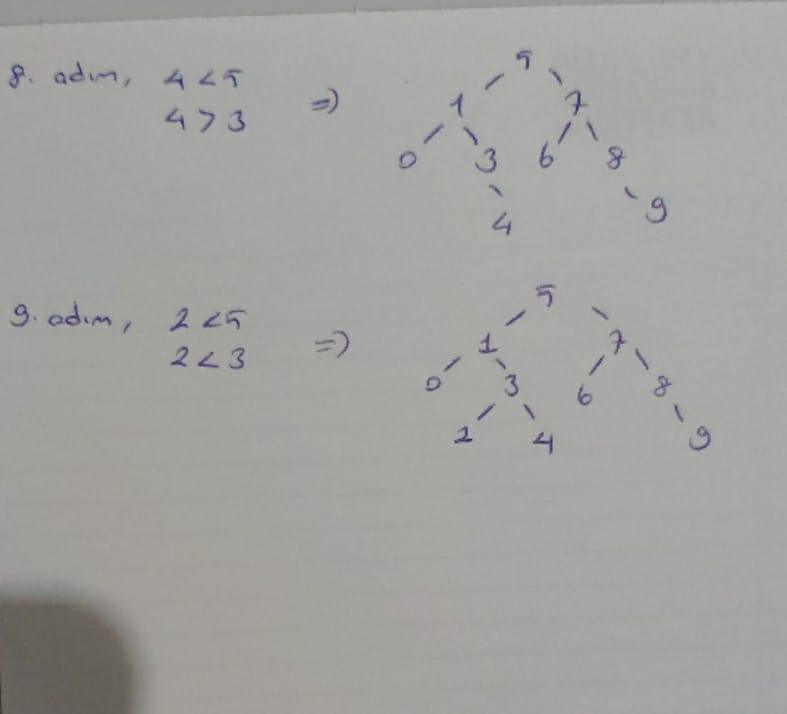 8. adım, 4 < 5
4 > 3
=>
5
1 7
0 3 6 8
4 9
9. adım, 2 < 5
2 < 3
=>
5
1 7
0 3 6 8
2 4 9